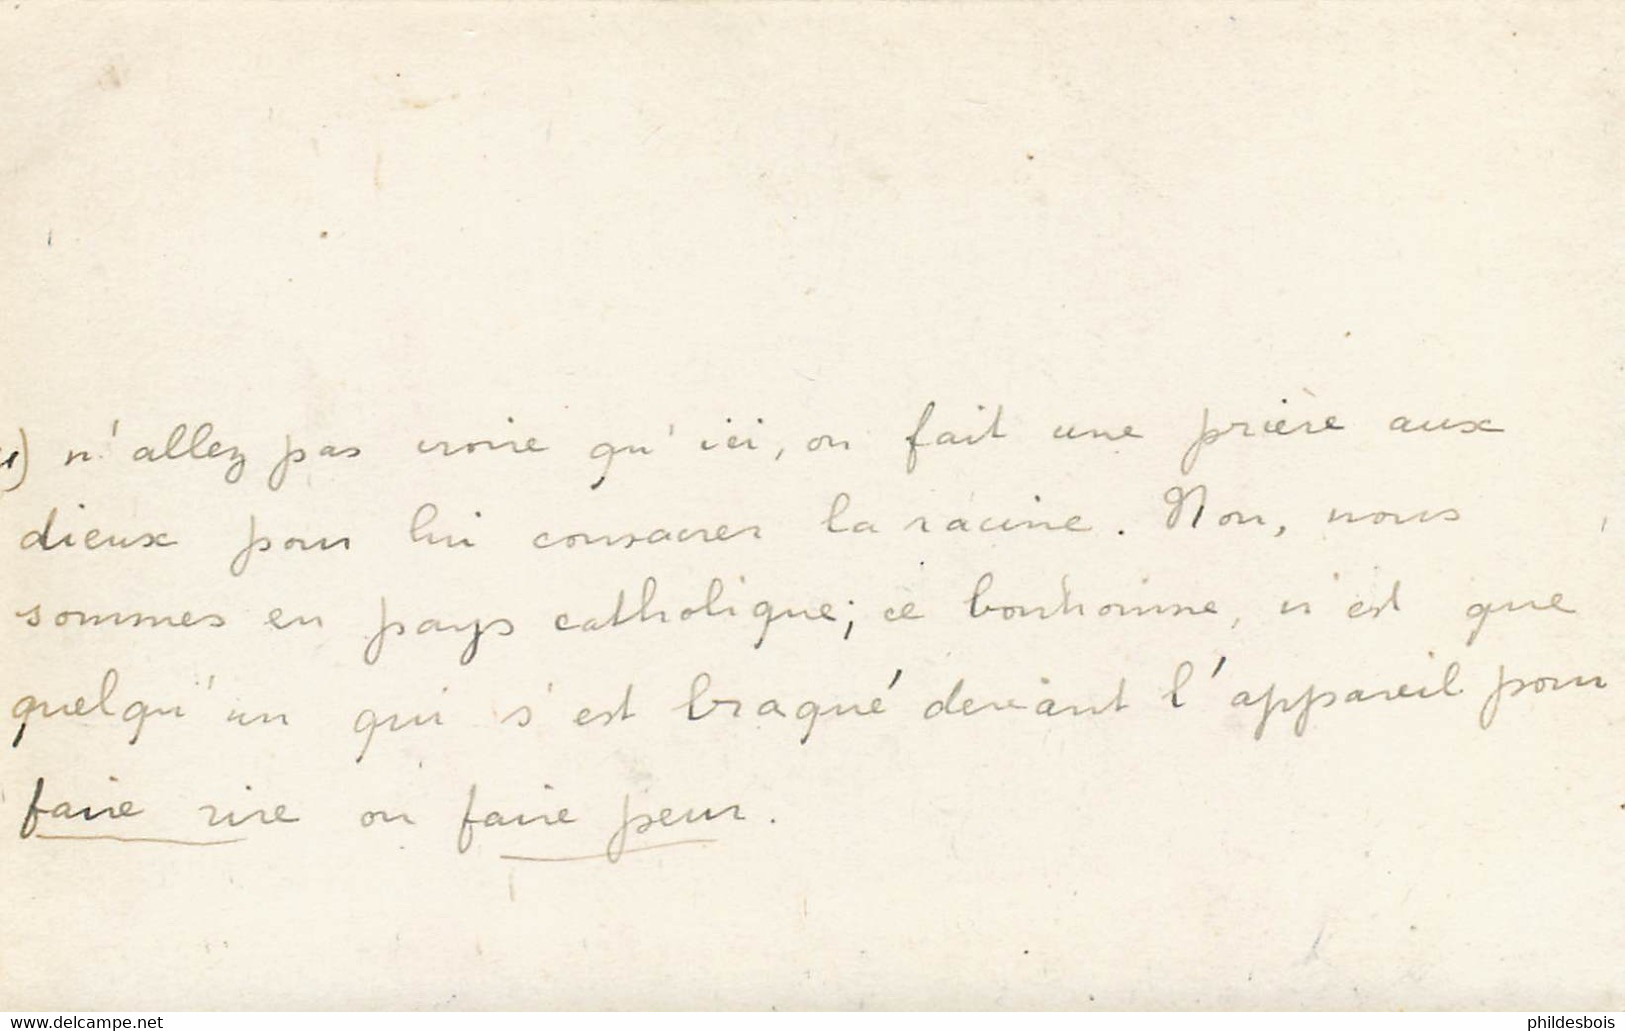 1) n'allez pas croire qu'ici, on fait une prière aux
dieux pour lui consacrer la racine. Non, nous
sommes en pays catholique; ce bonhomme, n'est que
quelqu'un qui s'est braqué devant l'appareil pour
faire rire ou faire peur.
www.delcampe.net
phildesbois